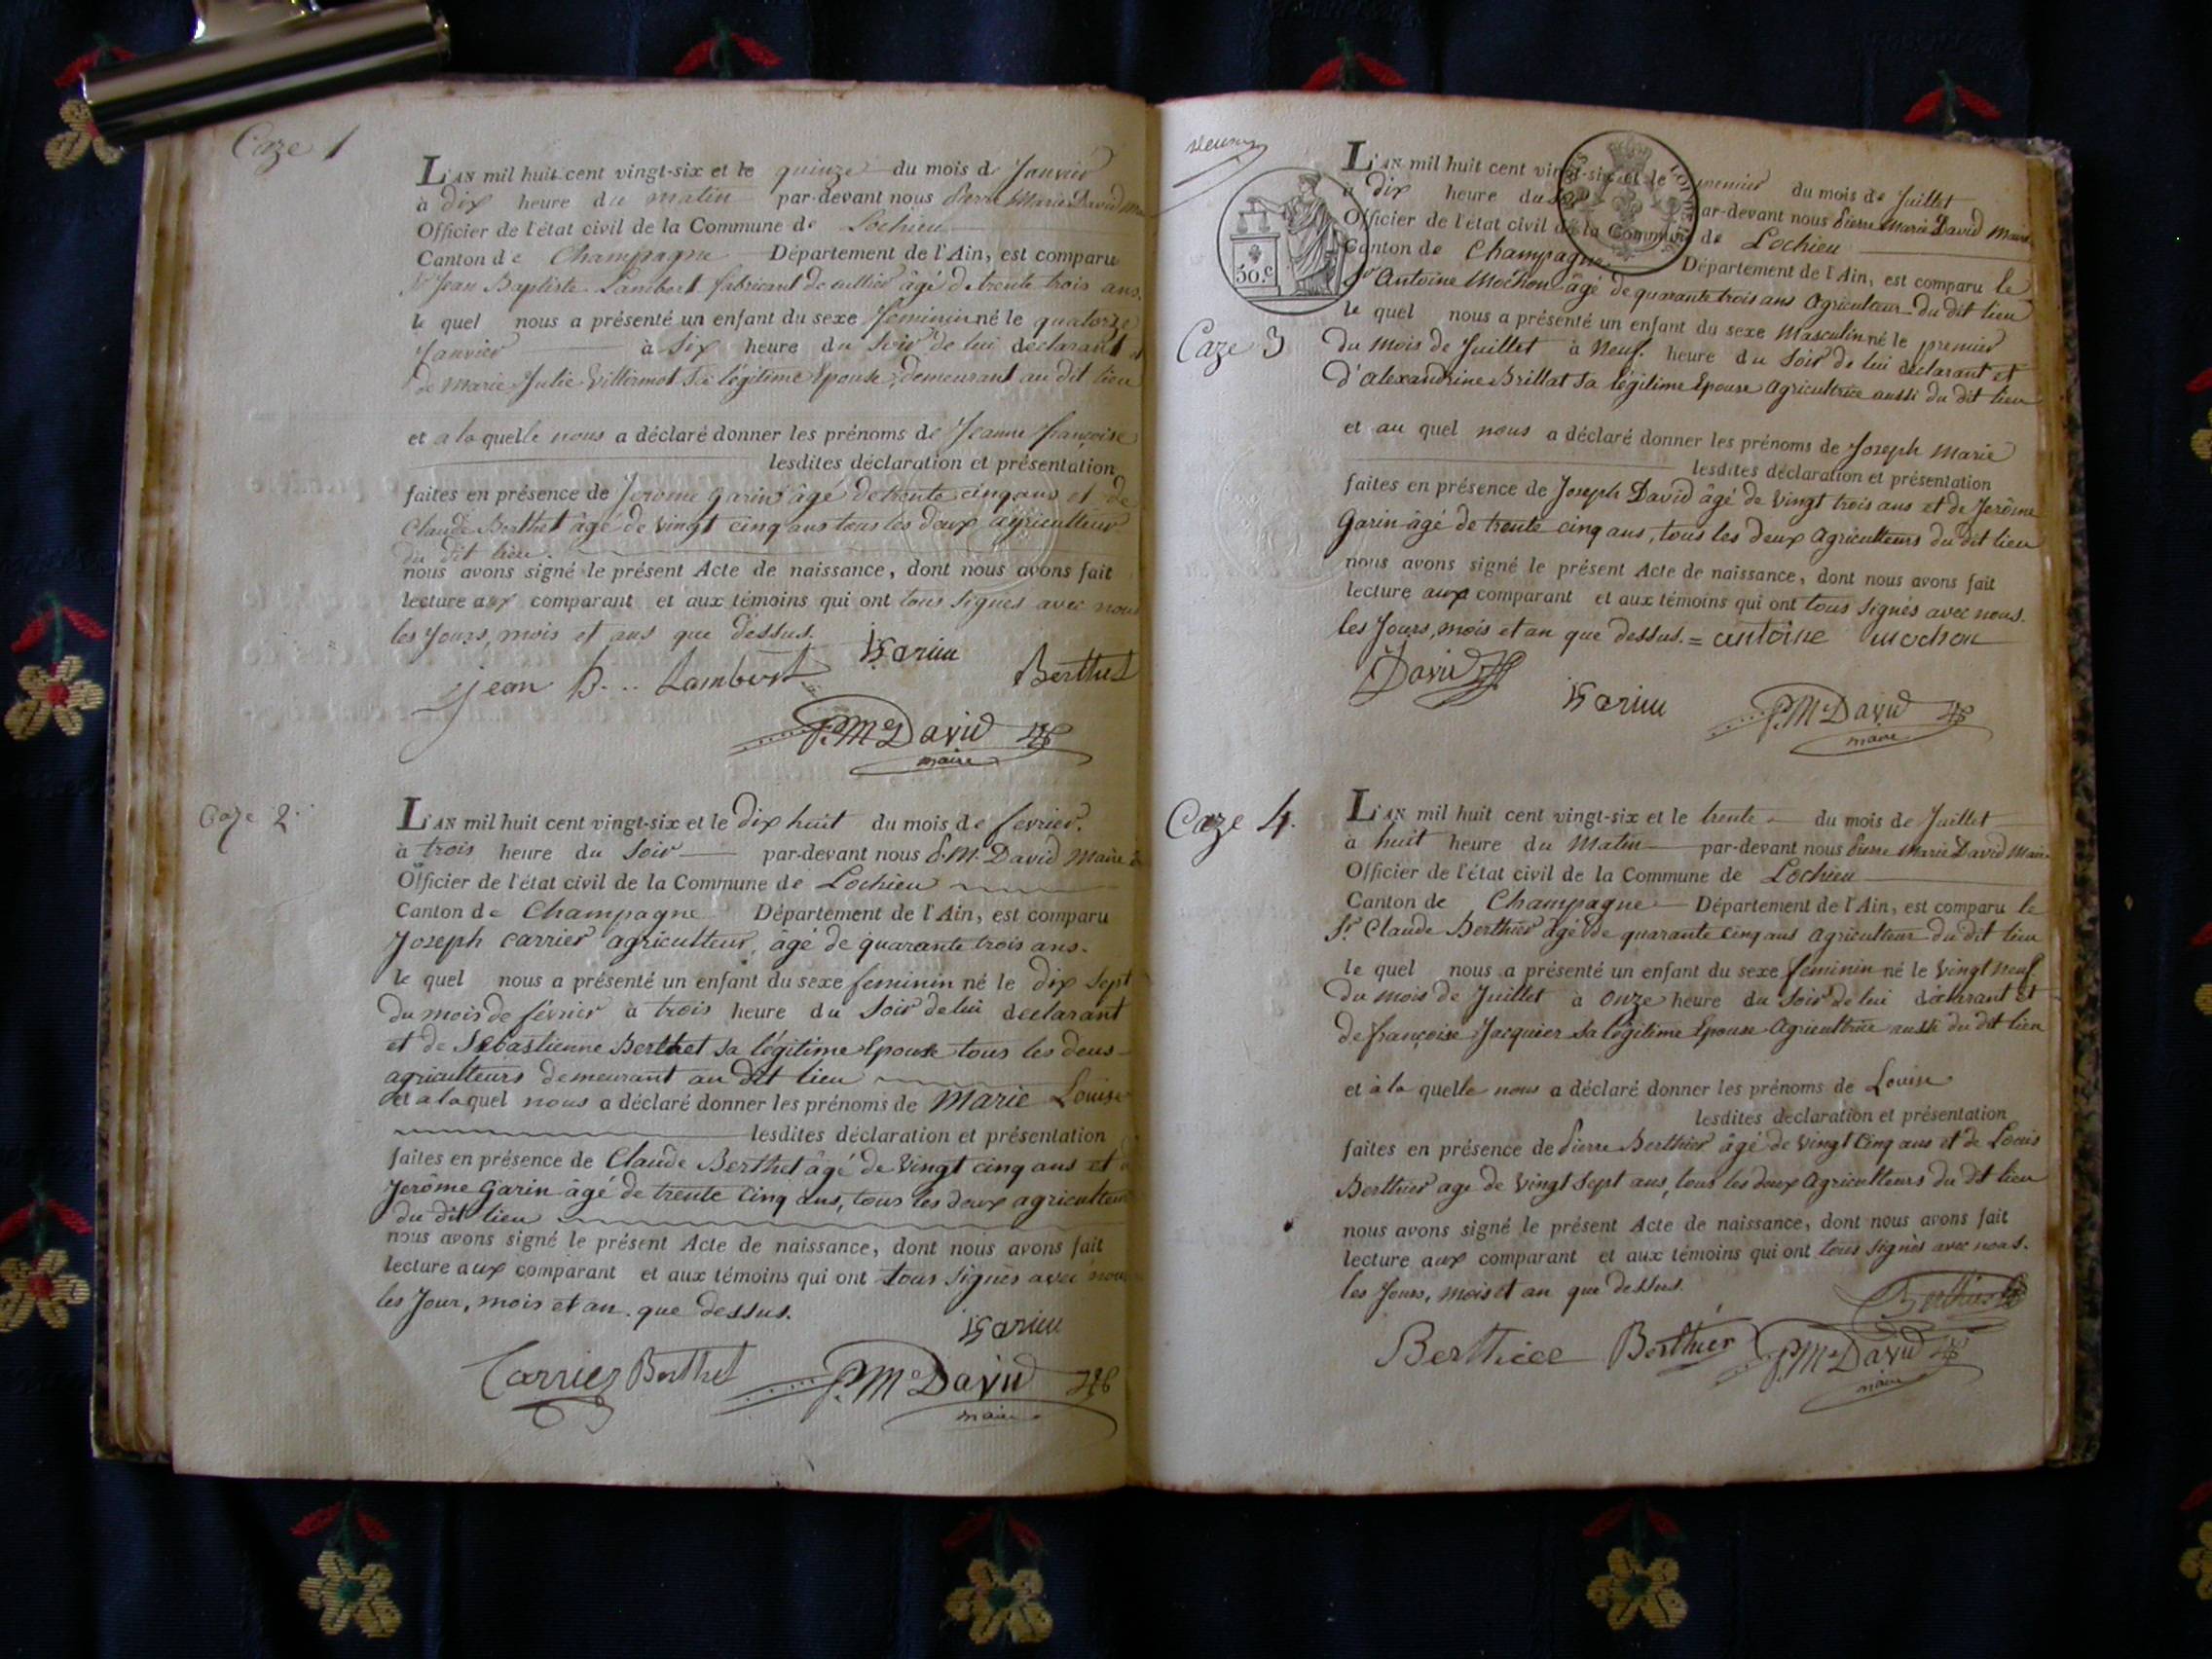 Caze 1
L'AN mil huit cent vingt-six et le quinze du mois de Janvier
à dix heure du matin par-devant nous Pierre Marie David
Officier de l'état civil de la Commune de Lochieu
Canton de Champagne Département de l'Ain, est comparu
Sr Jean Baptiste Lambert fabricant de âgé de trente trois ans.
le quel nous a présenté un enfant du sexe feminin né le quatorze
Janvier à Six heure du Soir de lui déclarant et
de Marie Julie Villermot Sa légitime Epouse, demeurant au dit lieu
et a la quelle nous a déclaré donner les prénoms de Jeanne françoise
lesdites déclaration et présentation
faites en présence de Jerome Garin âgé de trente cinq ans et de
Claude Berthet âgé de vingt cinq ans tous les deux agriculteur
du dit lieu.
nous avons signé le présent Acte de naissance, dont nous avons fait
lecture aux comparant et aux témoins qui ont tous signés avec nous
les Jours, mois et ans que dessus.
Garin
jean B... Lambert Berthet
P.M David
maire
Caze 2.
L'AN mil huit cent vingt-six et le dix huit du mois de fevrier.
à trois heure du Soir par-devant nous P.M. David Maire
Officier de l'état civil de la Commune de Lochieu
Canton de Champagne Département de l'Ain, est comparu
Joseph Carrier agriculteur, âgé de quarante trois ans.
le quel nous a présenté un enfant du sexe feminin né le dix Sept
du mois de février à trois heure du Soir de lui declarant
et de Sébastienne Berthet Sa légitime Epouse tous les deus
agriculteurs demeurant au dit lieu
et a laquel nous a déclaré donner les prénoms de Marie Louise
lesdites déclaration et présentation
faites en présence de Claude Berthet âgé de Vingt cinq ans et
Jerôme Garin âgé de trente Cinq ans, tous les deux agriculteurs
du dit lieu
nous avons signé le présent Acte de naissance, dont nous avons fait
lecture aux comparant et aux témoins qui ont tous Signés avec nous
les Jour, mois et an que dessus.
Garin
Carrier Berthet P.M David
maire
L'AN mil huit cent vingt-six et le premier du mois de Juillet
à dix heure du Soir par-devant nous Pierre Marie David Maire
Officier de l'état civil de la Commune de Lochieu
Canton de Champagne Département de l'Ain, est comparu le
50.c
Sr Antoine Mochon âgé de quarante trois ans Agriculteur du dit lieu
le quel nous a présenté un enfant du sexe Masculin né le premier
Caze 3
du Mois de Juillet à Neuf. heure du Soir de lui déclarant et
d'Alexandrine Brillat Sa légitime Epouse Agricultrice aussi du dit lieu
et au quel nous a déclaré donner les prénoms de Joseph Marie
lesdites déclaration et présentation
faites en présence de Joseph David âgé de Vingt trois ans et de Jerôme
Garin âgé de trente cinq ans, tous les deux Agriculteurs du dit lieu
nous avons signé le présent Acte de naissance, dont nous avons fait
lecture aux comparant et aux témoins qui ont tous Signés avec nous.
les Jours, mois et an que dessus. = antoine mochon
David
Garin P.M David
maire
Caze 4.
L'AN mil huit cent vingt-six et le trente du mois de Juillet
à huit heure du Matin par-devant nous Pierre Marie David Maire
Officier de l'état civil de la Commune de Lochieu
Canton de Champagne Département de l'Ain, est comparu le
Sr Claude Berthier âgé de quarante Cinq ans Agriculteur du dit lieu
le quel nous a présenté un enfant du sexe feminin né le Vingt Neuf
du mois de Juillet à Onze heure du Soir de lui déclarant et
de françoise Jacquier Sa légitime Epouse Agricultrice aussi du dit lieu
et à la quelle nous a déclaré donner les prénoms de Louise
lesdites déclaration et présentation
faites en présence de Pierre Berthier âgé de Vingt Cinq ans et de Louis
Berthier age de Vingt Sept ans, tous les deux Agriculteurs du dit lieu
nous avons signé le présent Acte de naissance, dont nous avons fait
lecture aux comparant et aux témoins qui ont tous Signés avec nous.
les Jours, mois et an que dessus.
Berthier
Berthier Berthier P.M David
maire